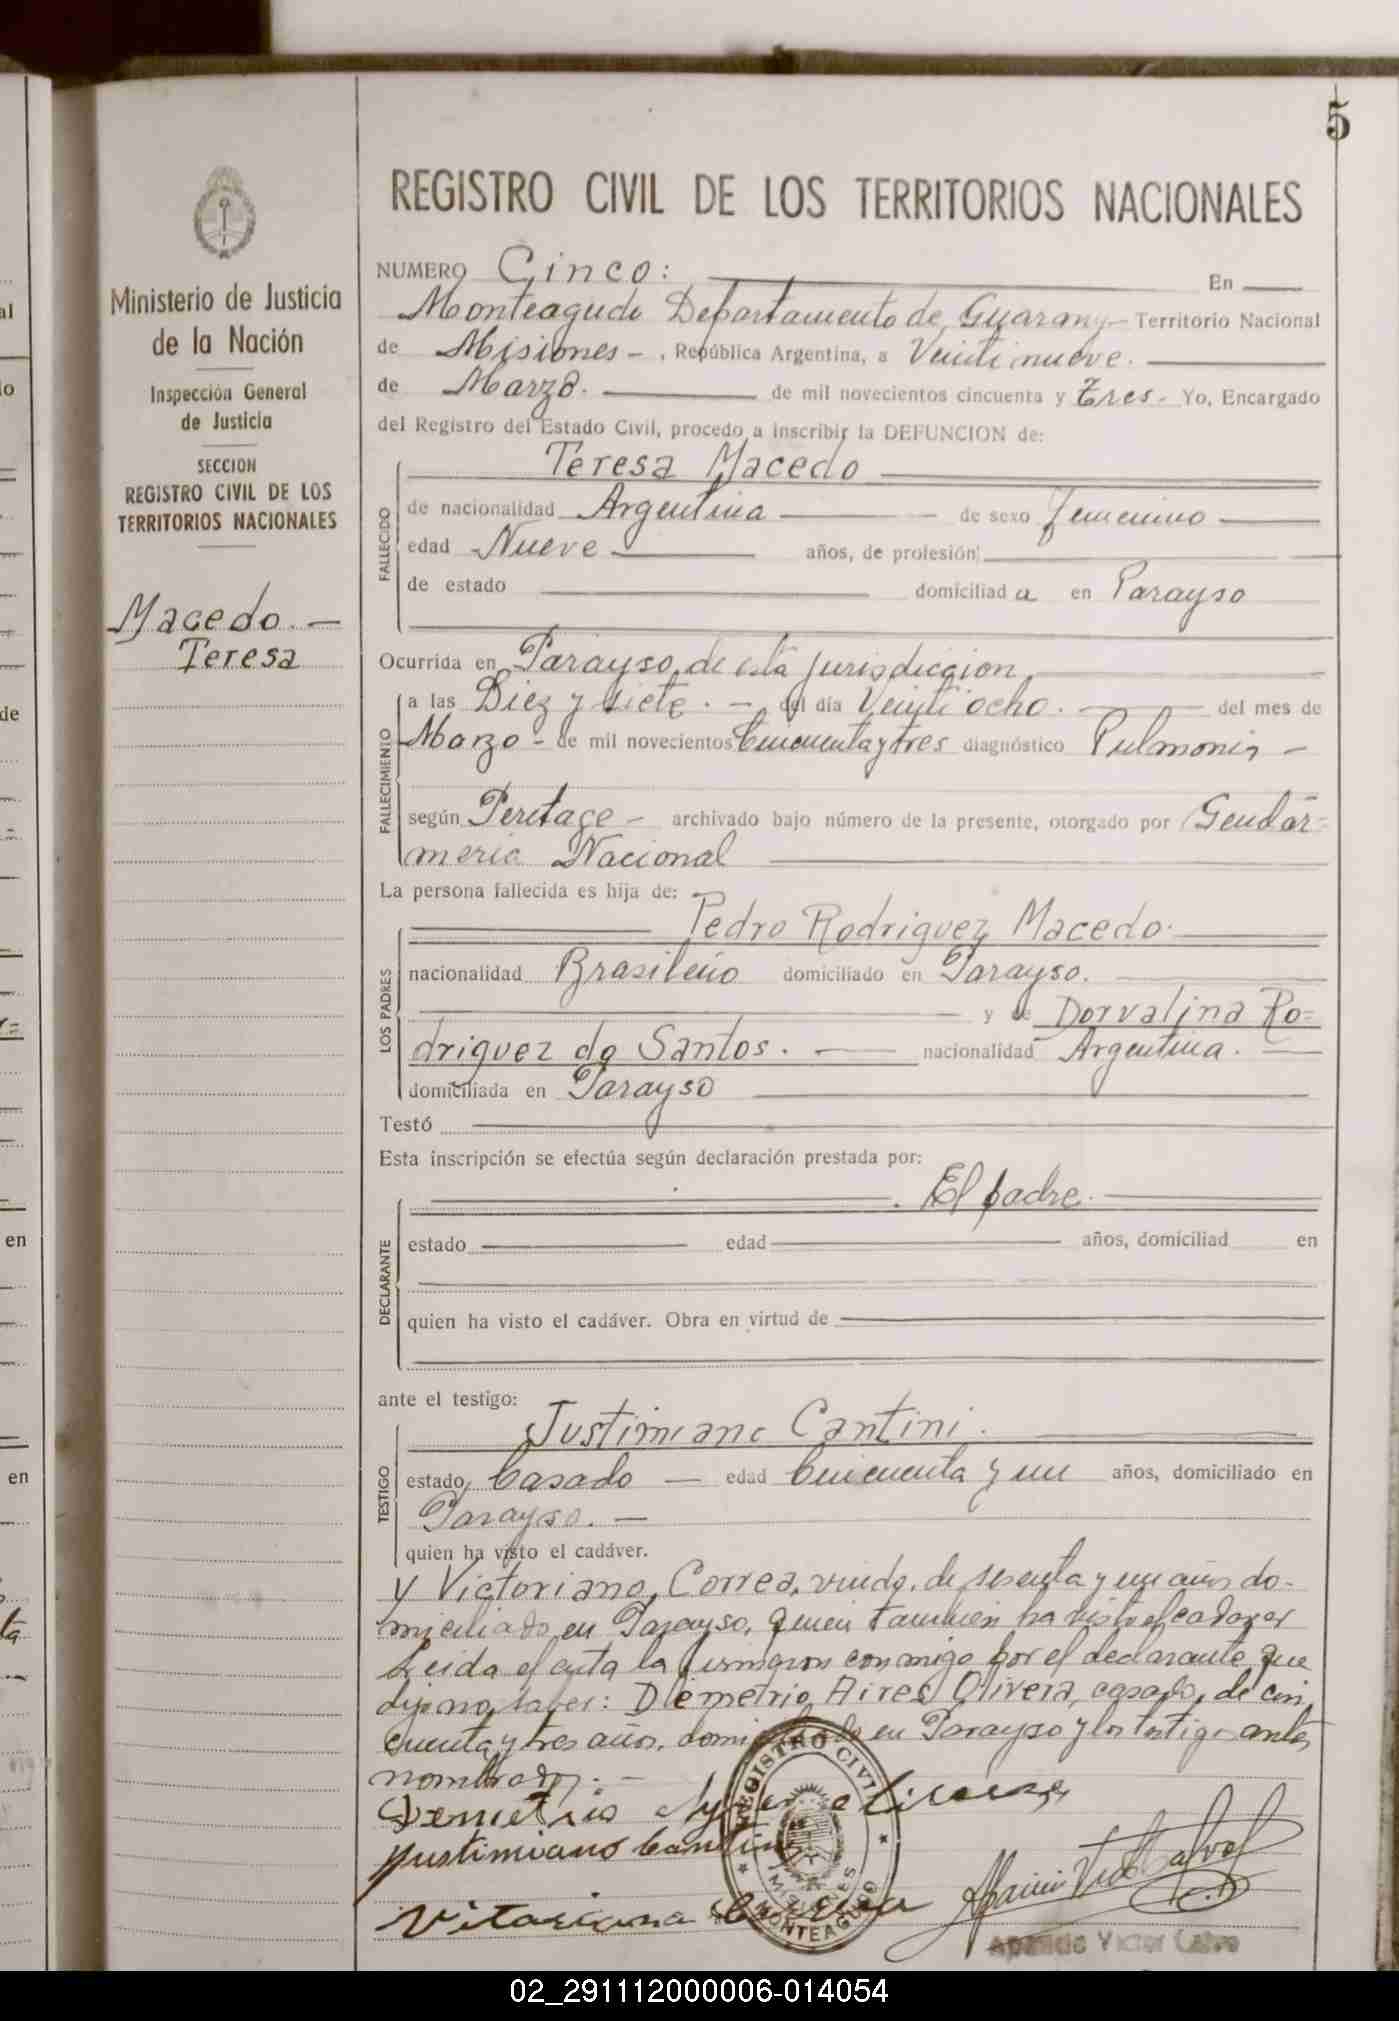 5
REGISTRO CIVIL DE LOS TERRITORIOS NACIONALES
Ministerio de Justicia
de la Nación
Inspección General
de Justicia
SECCION
REGISTRO CIVIL DE LOS
TERRITORIOS NACIONALES
Macedo. —
Teresa
NUMERO Cinco: En
Monteagudo Departamento de Guarany - Territorio Nacional
de Misiones - , República Argentina, a Veintinueve.
de Marzo. de mil novecientos cincuenta y Tres. Yo, Encargado
del Registro del Estado Civil, procedo a inscribir la DEFUNCION de:
Teresa Macedo
FALLECIDO
de nacionalidad Argentina de sexo femenino
edad Nueve años, de profesión
de estado domiciliad a en Parayso
Ocurrida en Parayso de esta jurisdiccion
FALLECIMIENTO
a las Diez y siete. - del día Veinti ocho. del mes de
Marzo - de mil novecientos Cincuenta y tres diagnóstico Pulmonia -
según Peretage - archivado bajo número de la presente, otorgado por Gendar=
meria Nacional
La persona fallecida es hija de:
Pedro Rodriguez Macedo.
LOS PADRES
nacionalidad Brasileño domiciliado en Parayso.
y de Dorvalina Ro=
driguez do Santos. nacionalidad Argentina.
domiciliada en Parayso
Testó
Esta inscripción se efectúa según declaración prestada por:
El padre.
DECLARANTE
estado edad años, domiciliad en
quien ha visto el cadáver. Obra en virtud de
ante el testigo:
Justimiano Cantini.
TESTIGO
estado Casado — edad Cincuenta y un años, domiciliado en
Parayso. —
quien ha visto el cadáver.
y Victoriano, Correa, viudo, de sesenta y un años do-
miciliado en Parayso, quien tambien ha visto el cadaver
Leida el acta la firmaron conmigo por el declarante que
dijo no saber: Demetrio Aires Olivera, casado, de cin
cuenta y tres años, domiciliado en Parayso y los testigos antes
nombrados. —
Demetrio Olivera
Justimiano Cantini
Vitoriano Correa
REGISTRO CIVIL
MISIONES
MONTEAGUDO
Aparicio Victor Calvo
02_291112000006-014054